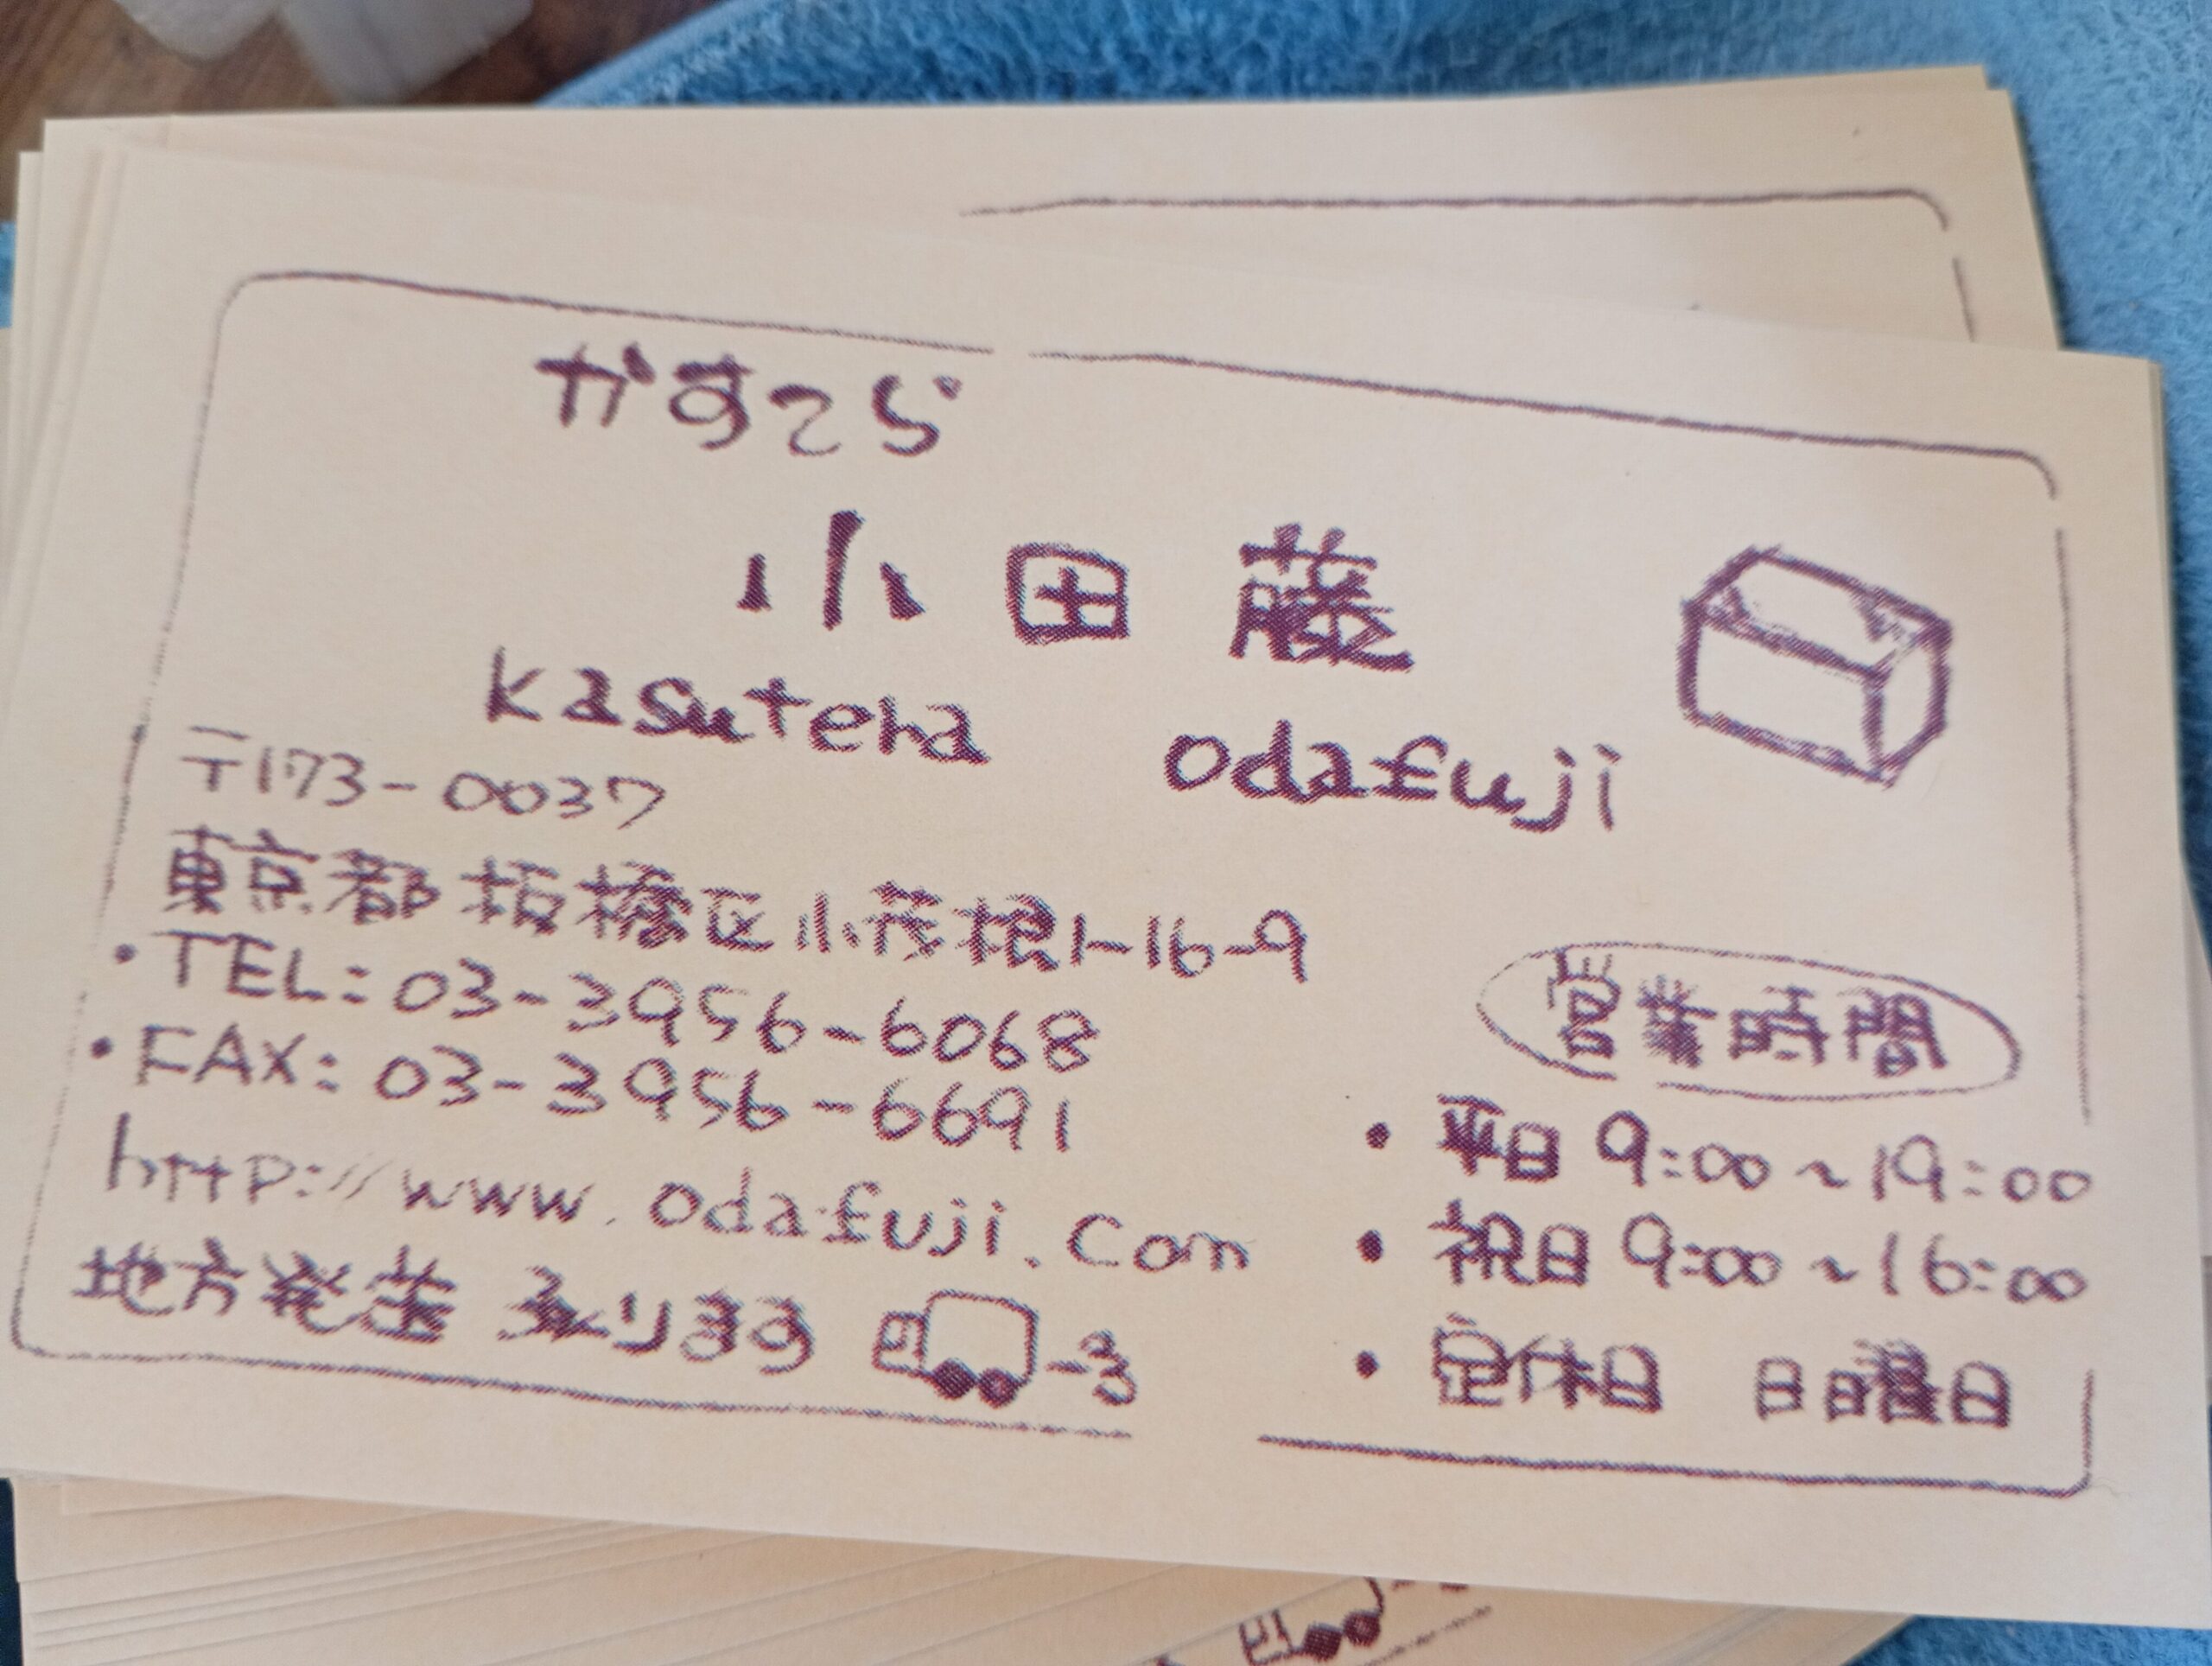 かすてら
小田藤
kasutera odafuji
〒173-0037
東京都板橋区小茂根1-16-9
・TEL:03-3956-6068
・FAX:03-3956-6691
http://www.odafuji.com
地方発送承ります
営業時間
・平日 9:00~19:00
・祝日 9:00~16:00
・定休日 日曜日